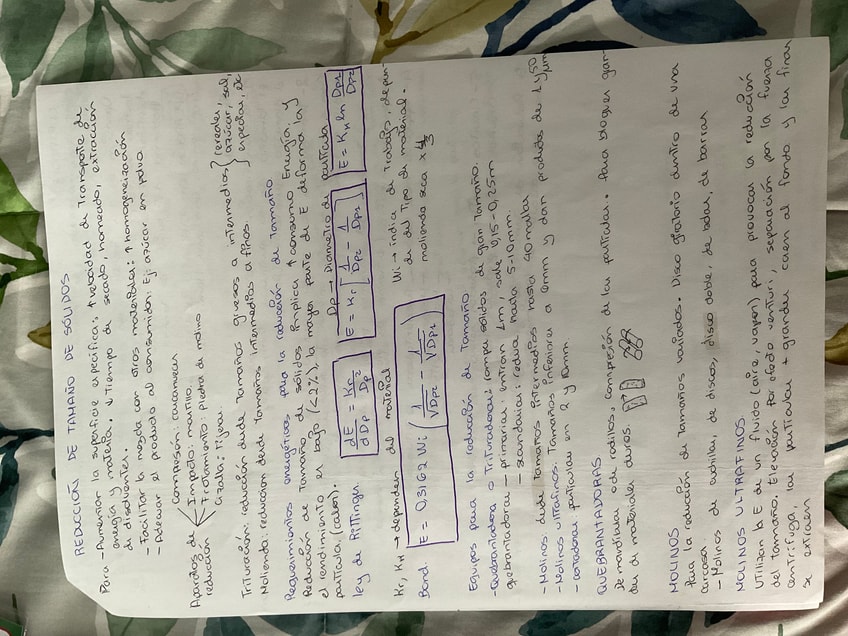 REDUCCIÓN DE TAMAÑO DE SÓLIDOS
Para - Aumentar la superficie específica: ↑ velocidad de Transporte de
energía y materia. ↓ Tiempo de secado, horneado, extracción
de disolventes.
- Facilitar la mezcla con otros materiales: ↑ homogeneización
- Adecuar el producto al consumidor. Ej: azúcar en polvo
Aparatos de reducción
Compresión: cascanueces
Impacto: martillo
Frotamiento: piedra de molino
Cizalla: Tijeras.
Trituración: reducción desde Tamaños gruesos a intermedios
Molienda: reducción desde Tamaños intermedios a finos
} cereales, azúcar, sal, especias, etc
Requerimientos energéticos para la reducción de Tamaño
Reducción de Tamaño de sólidos implica ↑ consumo Energía, y
el rendimiento es bajo (<2%), la mayor parte de E deforma la
partícula (calor).
Dp → Diametro de partícula
Ley de Rittinger
dE/dDp = Kn/Dp
E = Kr [1/Dp2 - 1/Dp1]
E = Kk ln Dp1/Dp2
Kr, Kk → dependen del material
Wi → índice de Trabajo, depen-
de del Tipo de material.
molienda seca x 4/3
Bond
E = 0,3162 Wi (1/√Dp2 - 1/√Dp1)
Equipos para la reducción de Tamaño
- Quebrantadoras o Trituradoras: rompe sólidos de gran Tamaño.
quebrantadoras - primarias: entran 1m, sale 0,15-0,25m
- secundarias: reduce hasta 5-10mm.
- Molinos desde Tamaños intermedios hasta 40 mallas
- Molinos ultrafinos. Tamaños inferiores a 6mm y dan productos de 1 y 50 μm
- cortadoras partículas en 2 y 10mm.
QUEBRANTADORAS
De mandíbulas o de rodillos, compresión de las partículas. Para bloques gran-
des de materiales duros.
MOLINOS
Para la reducción de Tamaños variados. Disco giratorio dentro de una
carcasa.
- Molinos de cuchilla, de discos, disco doble, de bolas, de barras
MOLINOS ULTRAFINOS
Utilizan la E de un fluido (aire, vapor) para provocar la reducción
del Tamaño. Elevación por efecto venturi, separación por la fuerza
centrífuga, las partículas + grandes caen al fondo y las finas
se extraen